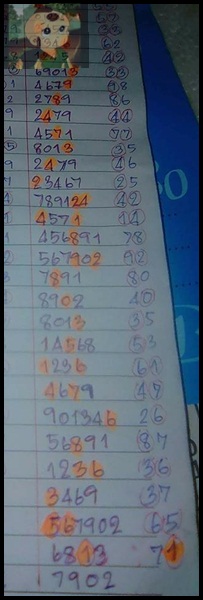 62
42
69013 33
4679 98
2789 86
2479 44
4571 77
8013 35
2479 46
23467 25
789124 42
4571 14
456891 78
567902 92
7891 80
8902 40
8013 35
14568 53
1236 61
4679 47
901346 26
56891 87
1236 36
3469 37
567902 65
6813 71
7902